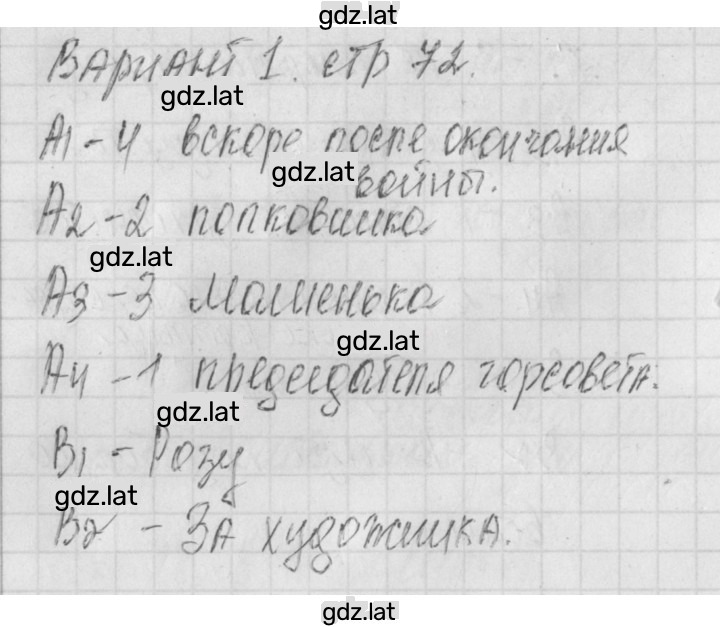 gdz.lat
Вариант 1. стр 72.
gdz.lat
А1 - 4 вскоре после окончания
gdz.lat
войны.
А2 - 2 полковника
gdz.lat
А3 - 3 Машенька
gdz.lat
А4 - 1 председателя горсовета.
gdz.lat
В1 - Розу
gdz.lat
В2 - За художника.
gdz.lat